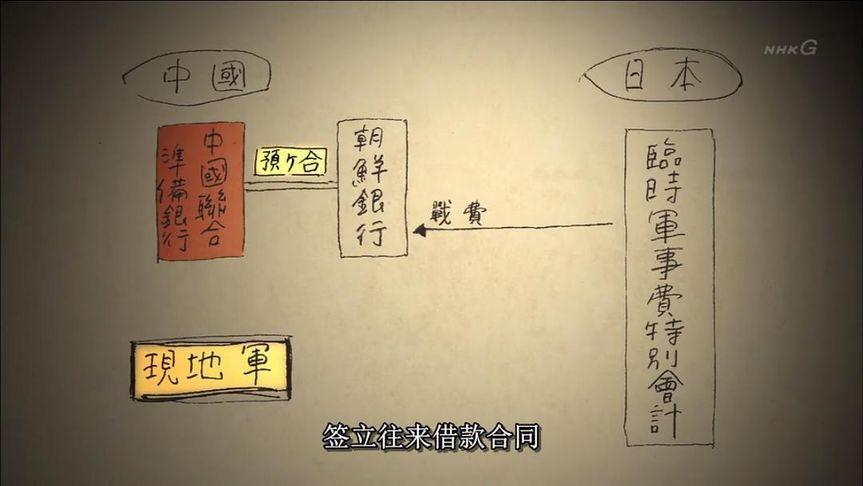 NHK G
中國
日本
中國聯合
準備銀行
預ケ合
朝鮮銀行
戰費
臨時軍事費特別會計
現地軍
签立往来借款合同